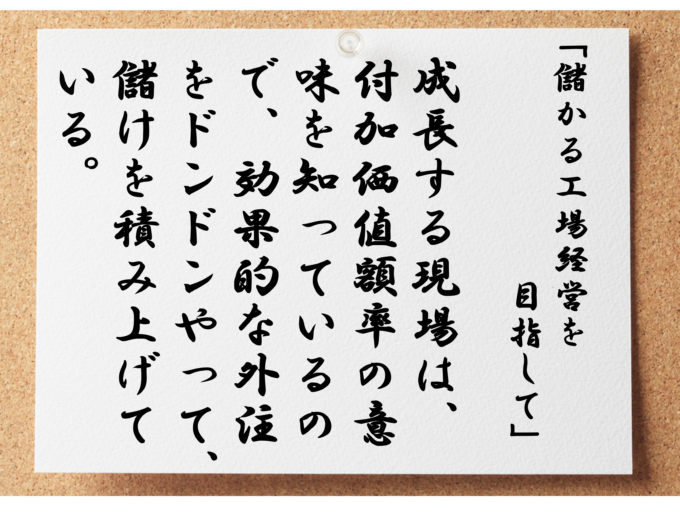 「儲かる工場経営を
目指して」
成長する現場は、
付加価値額率の意
味を知っているの
で、効果的な外注
をドンドンやって、
儲けを積み上げて
いる。